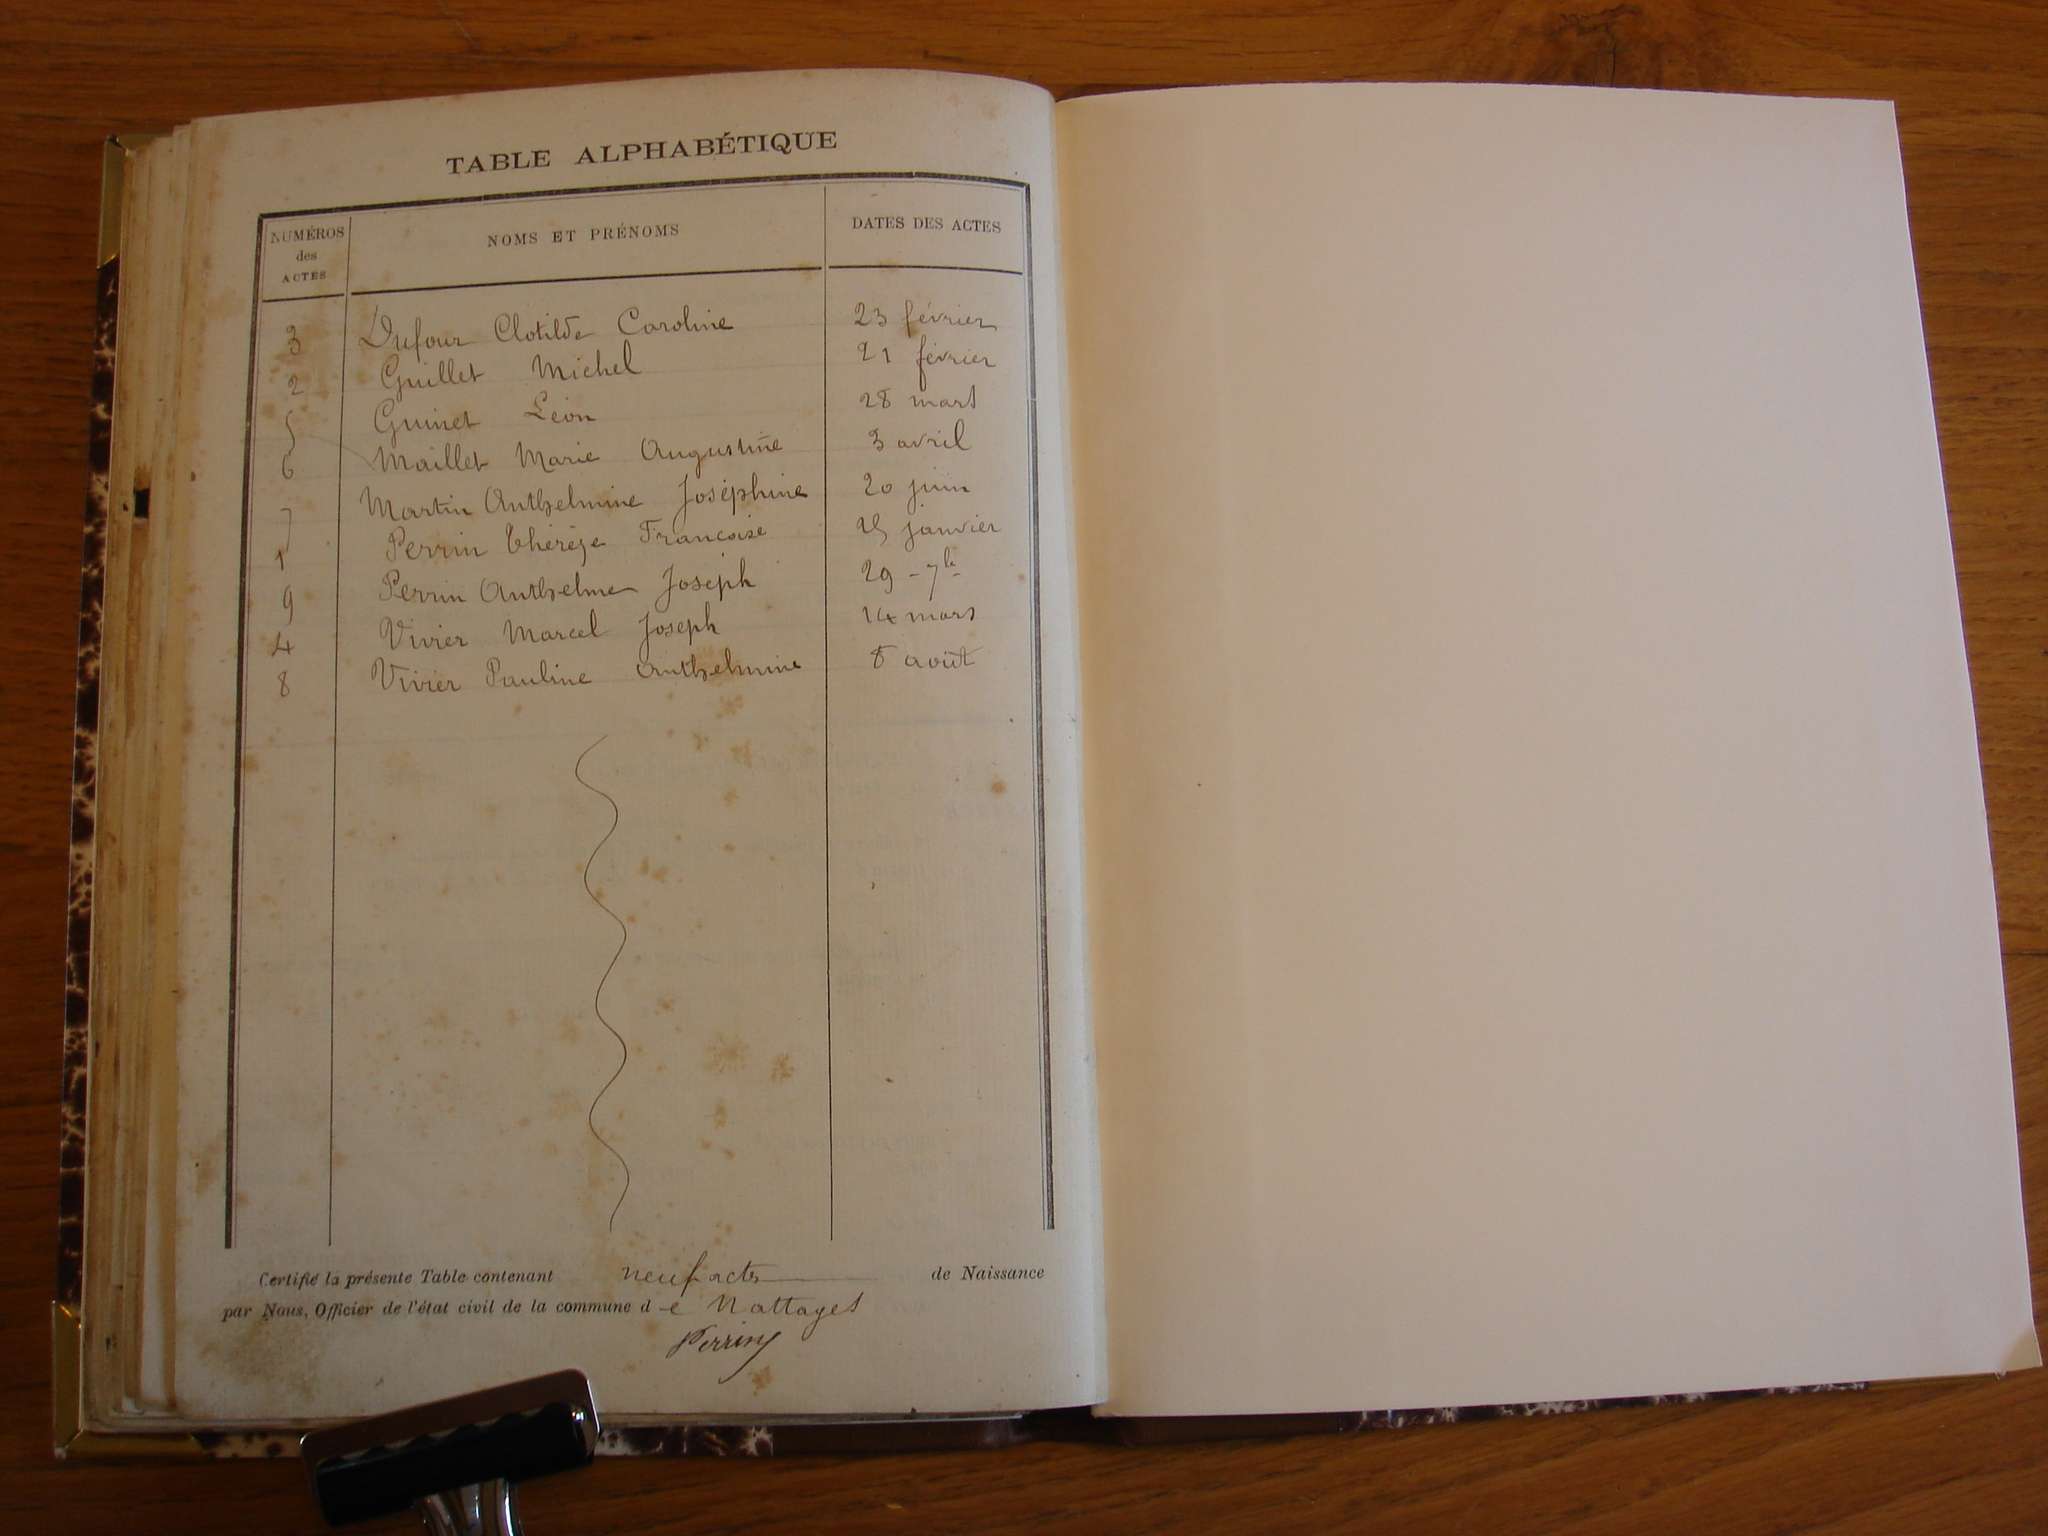 TABLE ALPHABÉTIQUE
NUMÉROS des ACTES NOMS ET PRÉNOMS DATES DES ACTES
3 Dufour Clotilde Caroline 23 février
2 Guillet Michel 21 février
5 Guinet Léon 28 mars
6 Maillet Marie Augustine 3 avril
7 Martin Anthelmine Joséphine 20 juin
1 Perrin Thérèze Francoise 25 janvier
9 Perrin Anthelme Joseph 29 - 7bre
4 Vivier Marcel Joseph 14 mars
8 Vivier Pauline Anthelmine 8 août
Certifié la présente Table contenant neuf actes de Naissance
par Nous, Officier de l'état civil de la commune d e Nattages
Perrin